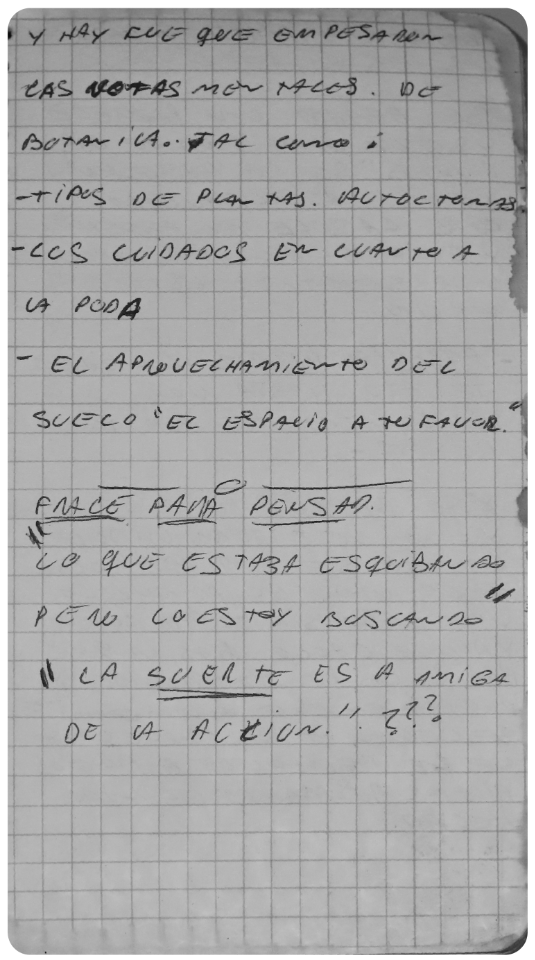 Y HAY FUE QUE EMPESARON
LAS NOTAS MENTALES. DE
BOTANICA. TAL como :
-TIPOS DE PLANTAS. AUTOCTONAS.
-LOS CUIDADOS EN CUANTO A
LA PODA
- EL APROVECHAMIENTO DEL
SUELO "EL ESPACIO A TU FAVOR."
FRACE PARA PENSAR.
"LO QUE ESTABA ESQUIBANDO
PERO LO ESTOY BUSCANDO"
"LA SUERTE ES A AMIGA
DE LA ACCION." ???